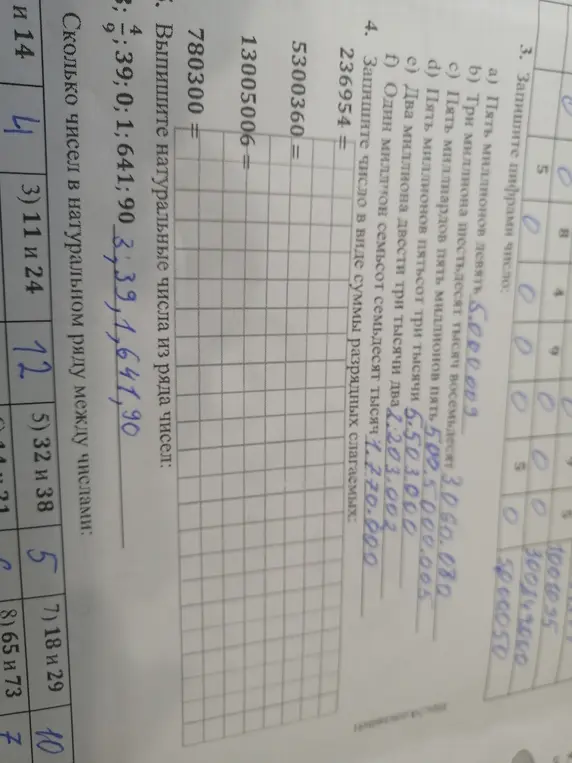 5 8 4 9 4 5
0 0 0 0 0 0 5 0
3. Запишите цифрами число:
a) Пять миллионов девять 5.000 009
b) Три миллиона шестьдесят тысяч восемьдесят 3 060.080
c) Пять миллиардов пять миллионов пять 5005 000.005
d) Пять миллионов пятьсот три тысячи 5.503.000
e) Два миллиона двести три тысячи два 2.203.002
f) Один миллион семьсот семьдесят тысяч 1.770.000
4. Запишите число в виде суммы разрядных слагаемых:
236954 =
5300360 =
13005006 =
780300 =
Выпишите натуральные числа из ряда чисел:
3; 4/9; 39; 0; 1; 641; 90 3; 39, 1, 641, 90
Сколько чисел в натуральном ряду между числами:
и 14 4 3) 11 и 24 12 5) 32 и 38 5 7) 18 и 29 10
8) 65 и 73 7